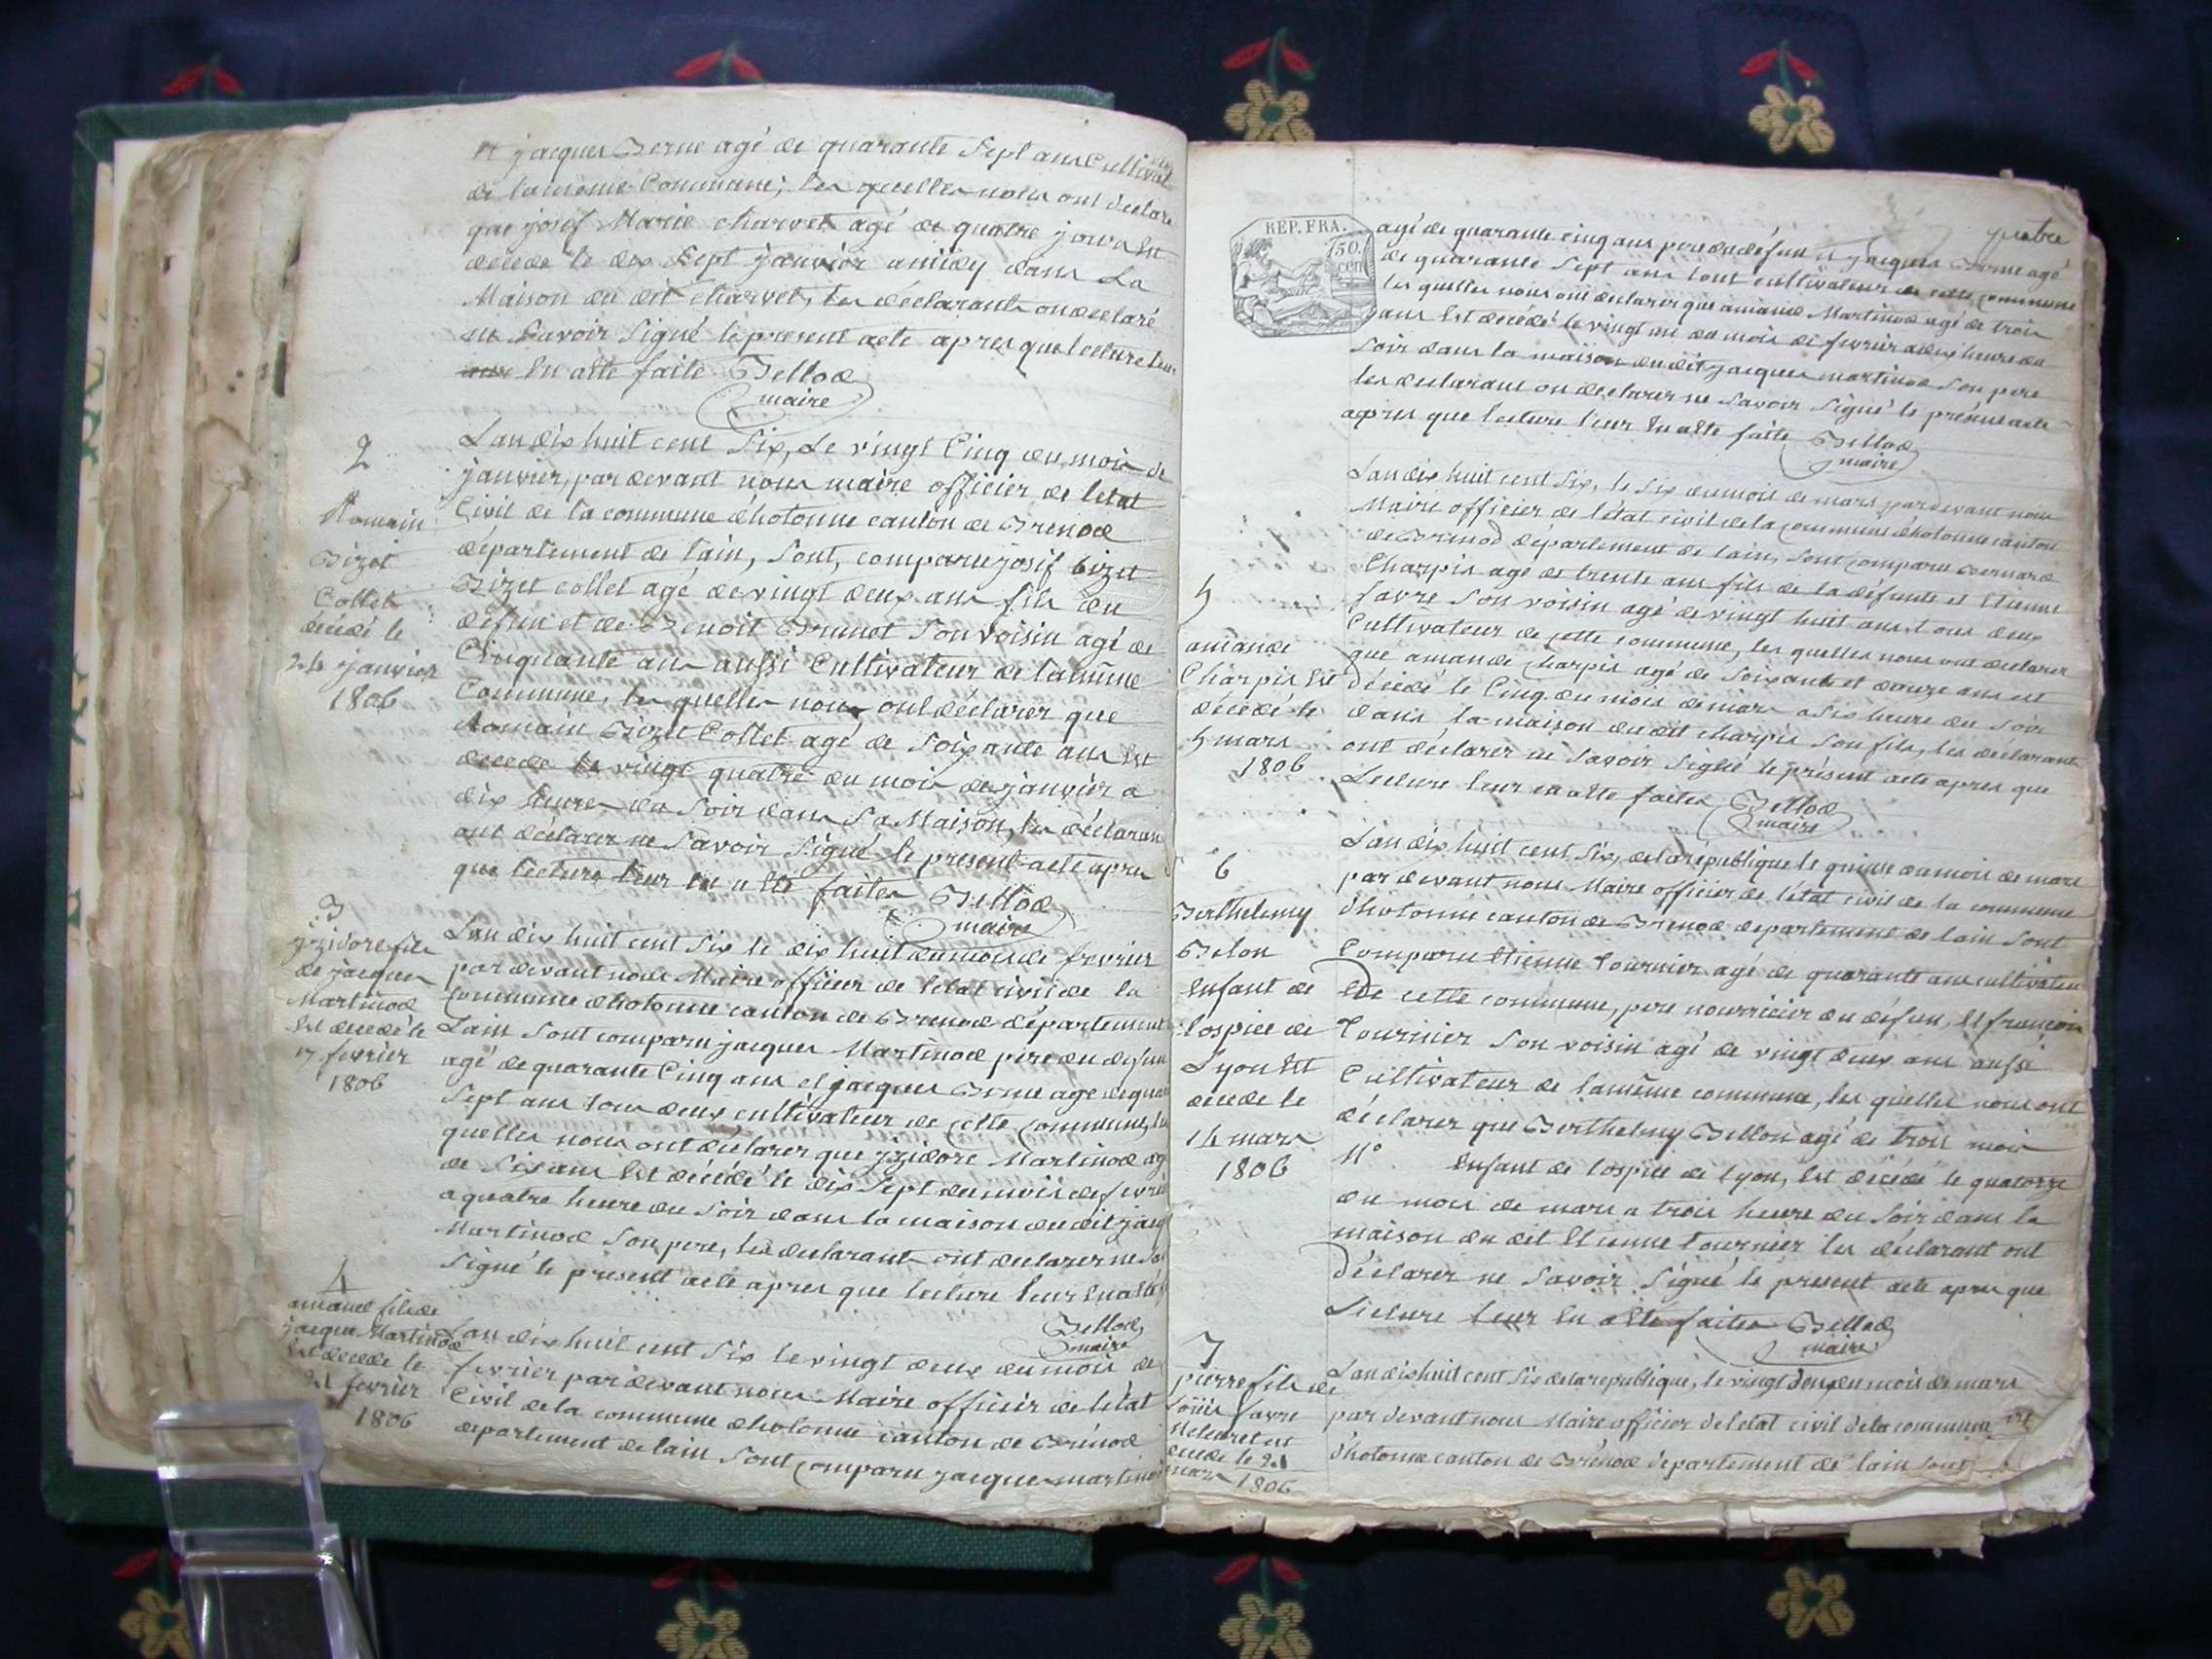 et jacques Berne agé de quarante Sept ans Cultivat
de la meme Commune; les quelles nous ont déclaré
que josef Marie charvet agé de quatre jours Est
décédé le dix Sept janvièr amidy dans La
Maison du dit charvet, les déclarants on déclaré
ne Savoir Signé le present acte apres que lecture leur
En aété faite Bellod
maire
2
Romain
Bizet
Collet
décédé le
24 janvier
1806
Lan dix huit cent Six, Le vingt Cinq du mois de
janvier, par devant nous maire officier de létat
Civil de la commune dhotonne canton de Brenod
département de lain, Sont, comparu josif bizet
Bizet collet agé de vingt deux ans fils du
défun et de Benoit Brunet Son voisin agé de
Cinquante ans aussi Cultivateur de la mme
Commune, les quelles nous ont déclarer que
Romain Bizet Collet agé de Soixante ans Est
décédé le vingt quatre du mois de janvièr a
dix heures du Soir dans Sa Maison, les déclaran
ont déclarer ne Savoir Signé le present acte apres
que lecture leur En a Eté faites Bellod
maire
3
jzidore fils
de jacques
Martinod
Est décédé le
17 fevrier
1806
Lan dix huit cent Six le dix huit du mois de fevrier
par devant nous Maire officier de létat civil de la
Commune dhotonne canton de Brenod département
Lain Sont comparu jacques Martinod pere du defun
agé de quarante Cinq ans et jacques Berne agé de qua
Sept ans tous deux cultivateur de cette commune, les
quelles nous ont déclarer que jzidore Martinod ag
de Six ans Est décédé le dix Sept du mois de fevri
a quatre heure du Soir dans la maison du dit jacq
Martinod Son pere, les declarants ont declarer ne Sa
Signé le present acte apres que lecture leur En a Eté
Bellod
maire
4
amand fils de
jacque Martinod
Est décédé le
21 fevrier
1806
Lan dix huit cent Six le vingt deux du mois de
fevrier par devant nous Maire officier de létat
Civil de la commune dhotonne canton de Brénod
departement de lain Sont comparu jacques martinod
quatre
REP. FRA.
150.
cen
agé de quarante cinq ans pere du défun et jacques Berne agé
de quarante Sept ans tout cultivateur de cette commune
les quelles nous ont declarer que amand Martinod agé de trois
ans Est decédé le vingt un du mois de fevrier a dix heure du
Soir dans la maison du dit jacques martinod Son pere
les declarant on declarer ne Savoir Signé le présent acte
apres que lecture leur En a Eté faite Bellod
maire
5
amande
Charpis Est
décédé le
5 mars
1806
Lan dix huit cent Six, le Six du mois de mars par devant nous
Maire officier de létat civil de la commune dhotonne canton
de Brenod département de lain, Sont comparu Bernard
Charpis agé de trente ans fils de la défunte et Etienne
favre Son voisin agé de vingt huit ans tous deux
Cultivateur de cette commune, les quelles nous ont declarer
que amande charpis agé de Soixante et douze ans est
décédé le Cinq du mois de mars a Six heure du Soir
dans la maison du dit charpis Son fils, les declarant
ont déclarer ne Savoir Signé le présent acte apres que
Lecture leur en a Eté faites Bellod
maire
6
Berthelemy
Belon
Enfant de
lospice de
Lyon Est
décédé le
14 mars
1806
Lan dix huit cent Six, de la republique le quinze du mois de mars
par devant nous Maire officier de létat civil de la commune
dhotonne canton de Brenod departement de lain Sont
Comparu Etienne Tournier agé de quarante ans cultivateu
De cette commune, pere nourricier du défun, Et françois
Tournier Son voisin agé de vingt deux ans aussi
Cultivateur de la même commune, les quelles nous ont
déclarer que Berthelmy Bellon agé de trois mois
No Enfant de lospice de lyon, Est décédé le quatorze
du mois de mars a trois heure du Soir dans la
maison du dit Etienne Tournier les déclarant ont
déclarer ne Savoir Signé le present acte apres que
Lecture leur En a Eté faites Bellod
maire
7
pierre fils de
Louis favre
décédé le 21
mars 1806
Lan dix huit cent Six de la republique, le vingt deux du mois de mars
par devant nous Maire officier de létat civil de la commune
dhotonne canton de Brénod département de lain Sont